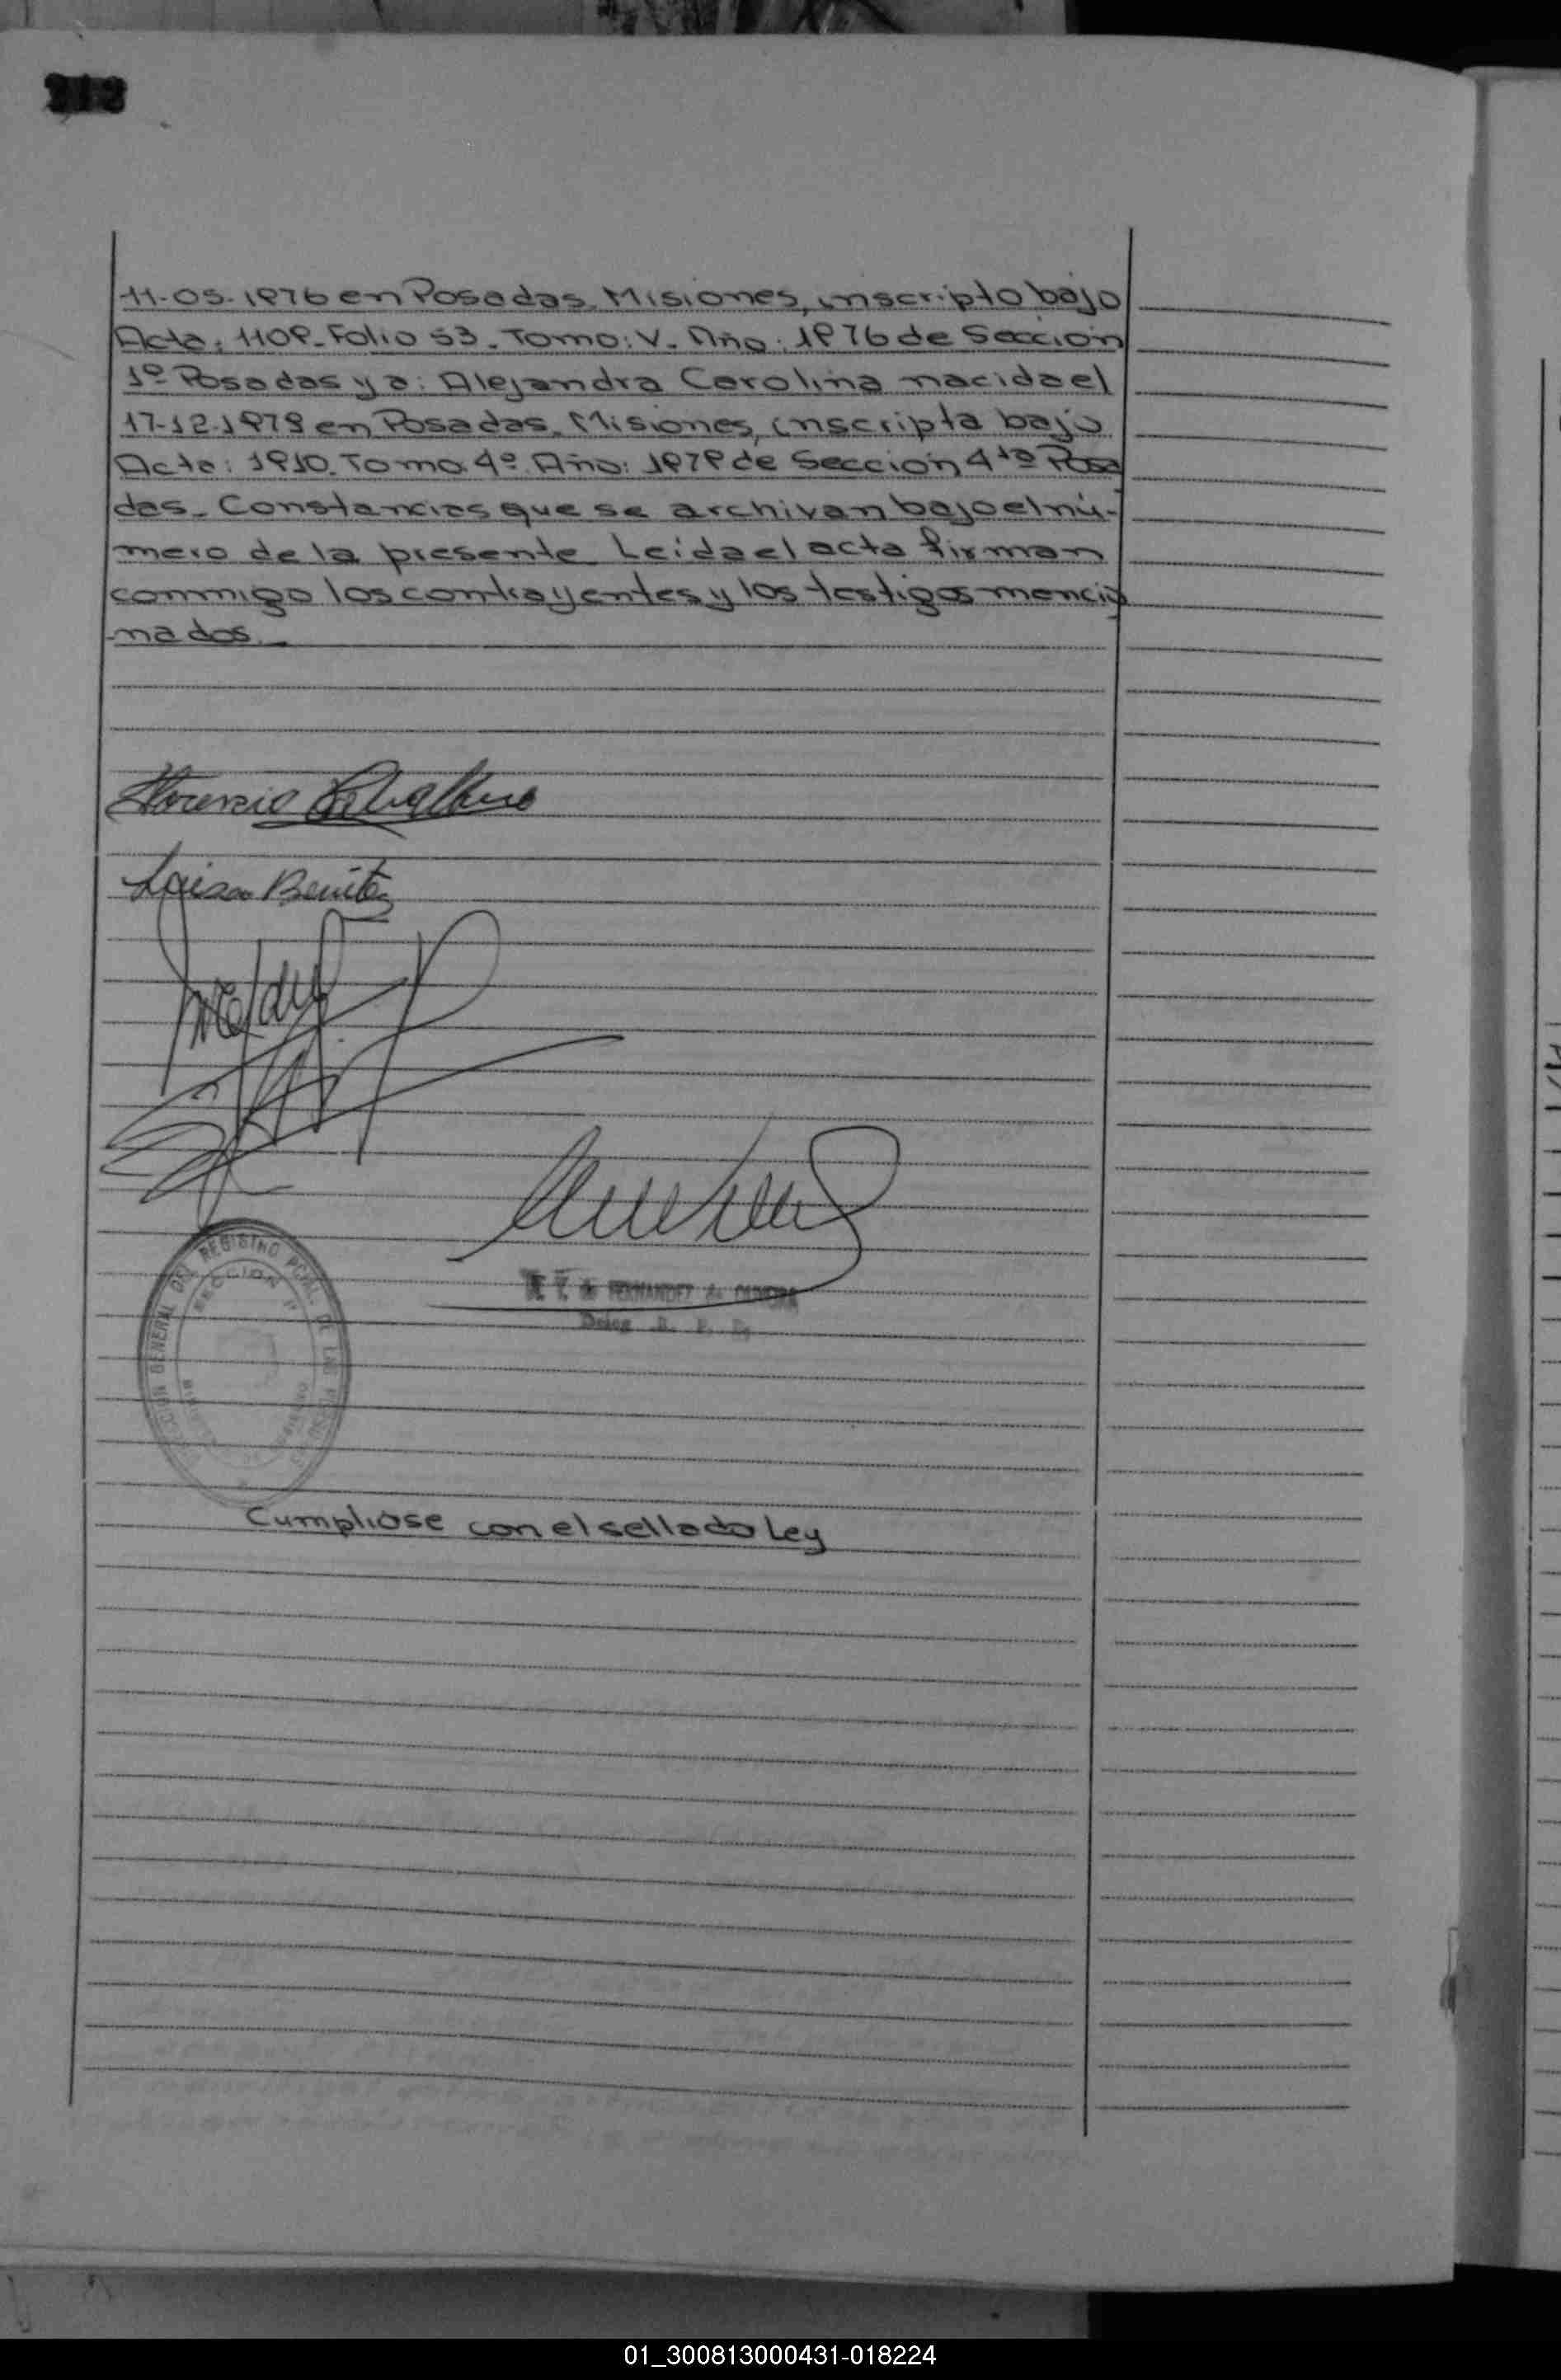 11-05-1976 en Posadas, Misiones, inscripto bajo
Acta: 1109. Folio 53. Tomo: V. Año: 1976 de Sección
1º Posadas y a: Alejandra Carolina nacida el
17-12-1979 en Posadas, Misiones, inscripta bajo
Acta: 1910. Tomo 4º. Año: 1979 de Sección 4ta Posa
das. Constancias que se archivan bajo el nú-
mero de la presente. Leída el acta firman
conmigo los contrayentes y los testigos mencio
nados.
Luisa Benitez
REGISTRO PCIAL. DE LAS
GENERAL DEL
SECCION
FERNANDEZ de
Deleg. R. P.
Cumpliose con el sellado Ley
01_300813000431-018224